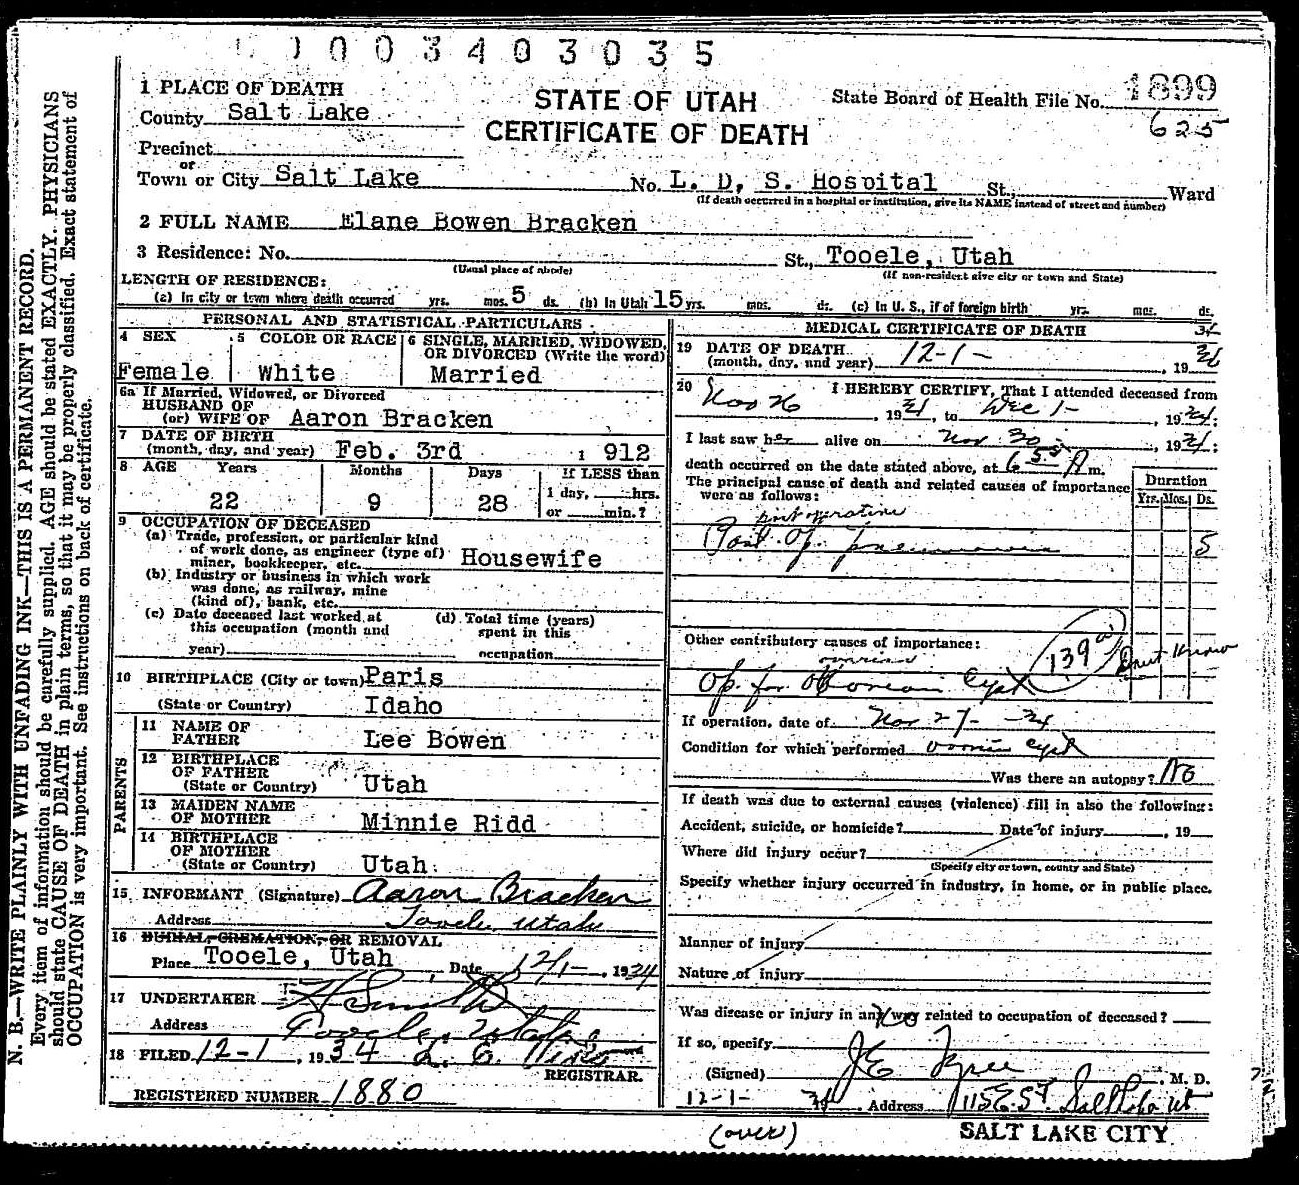 0003403035
1 PLACE OF DEATH
County Salt Lake
STATE OF UTAH
CERTIFICATE OF DEATH
State Board of Health File No. 1899
625
Precinct
or
Town or City Salt Lake No. L. D, S. Hospital St., Ward
(If death occurred in a hospital or institution, give its NAME instead of street and number)
2 FULL NAME Elane Bowen Bracken
3 Residence: No. St., Tooele, Utah
(Usual place of abode) (If non-resident give city or town and State)
LENGTH OF RESIDENCE:
(a) In city or town where death occurred yrs. mos. 5 ds. (b) In Utah 15 yrs. mos. ds. (c) In U. S., if of foreign birth yrs. mos. ds.
PERSONAL AND STATISTICAL PARTICULARS
4 SEX
Female
5 COLOR OR RACE
White
6 SINGLE, MARRIED, WIDOWED,
OR DIVORCED (Write the word)
Married
6a If Married, Widowed, or Divorced
HUSBAND OF
(or) WIFE OF Aaron Bracken
7 DATE OF BIRTH
(month, day, and year) Feb. 3rd 1912
8 AGE Years Months Days If LESS than
22 9 28 1 day, hrs.
or min.?
9 OCCUPATION OF DECEASED
(a) Trade, profession, or particular kind
of work done, as engineer (type of)
miner, bookkeeper, etc. Housewife
(b) Industry or business in which work
was done, as railway, mine
(kind of), bank, etc.
(c) Date deceased last worked at
this occupation (month and
year)
(d) Total time (years)
spent in this
occupation
10 BIRTHPLACE (City or town) Paris
(State or Country) Idaho
PARENTS
11 NAME OF
FATHER Lee Bowen
12 BIRTHPLACE
OF FATHER
(State or Country) Utah
13 MAIDEN NAME
OF MOTHER Minnie Ridd
14 BIRTHPLACE
OF MOTHER
(State or Country) Utah
15 INFORMANT (Signature) Aaron Bracken
Address Tooele, Utah
16 BURIAL, CREMATION, OR REMOVAL
Place Tooele, Utah Date 12/1-, 1934
17 UNDERTAKER
Address Tooele, Utah
18 FILED 12-1, 1934
REGISTRAR.
REGISTERED NUMBER 1880
MEDICAL CERTIFICATE OF DEATH
34
19 DATE OF DEATH
(month, day, and year) 12-1-, 19
20 I HEREBY CERTIFY, That I attended deceased from
Nov 26, 1934, to Dec 1-, 1934;
I last saw her alive on Nov. 30, 1934;
death occurred on the date stated above, at 6 55 A m.
The principal cause of death and related causes of importance
were as follows:
Duration
Yrs. Mos. Ds.
post operative
Post. Op. Pneumonia 5
Other contributory causes of importance:
ovarian
139 a
Dont Know
Op. for Ovarian Cyst
If operation, date of Nov 27- 34
Condition for which performed ovarian cyst
Was there an autopsy? No
If death was due to external causes (violence) fill in also the following:
Accident, suicide, or homicide? Date of injury, 19
Where did injury occur?
(Specify city or town, county and State)
Specify whether injury occurred in industry, in home, or in public place.
Manner of injury
Nature of injury
Was disease or injury in any way related to occupation of deceased? No
If so, specify
(Signed) J E Tyree, M. D.
12-1- 34, Address 115 E. S. T. Salt Lake Ut
(over)
SALT LAKE CITY
N. B.—WRITE PLAINLY WITH UNFADING INK—THIS IS A PERMANENT RECORD.
Every item of information should be carefully supplied. AGE should be stated EXACTLY. PHYSICIANS
should state CAUSE OF DEATH in plain terms, so that it may be properly classified. Exact statement of
OCCUPATION is very important. See instructions on back of certificate.